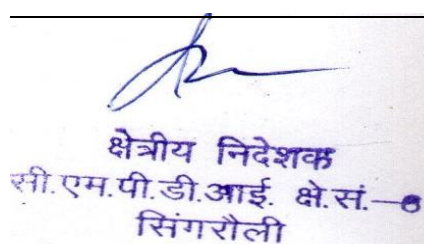 क्षेत्रीय निदेशक
सी.एम.पी.डी.आई. क्षे.सं.—6
सिंगरौली